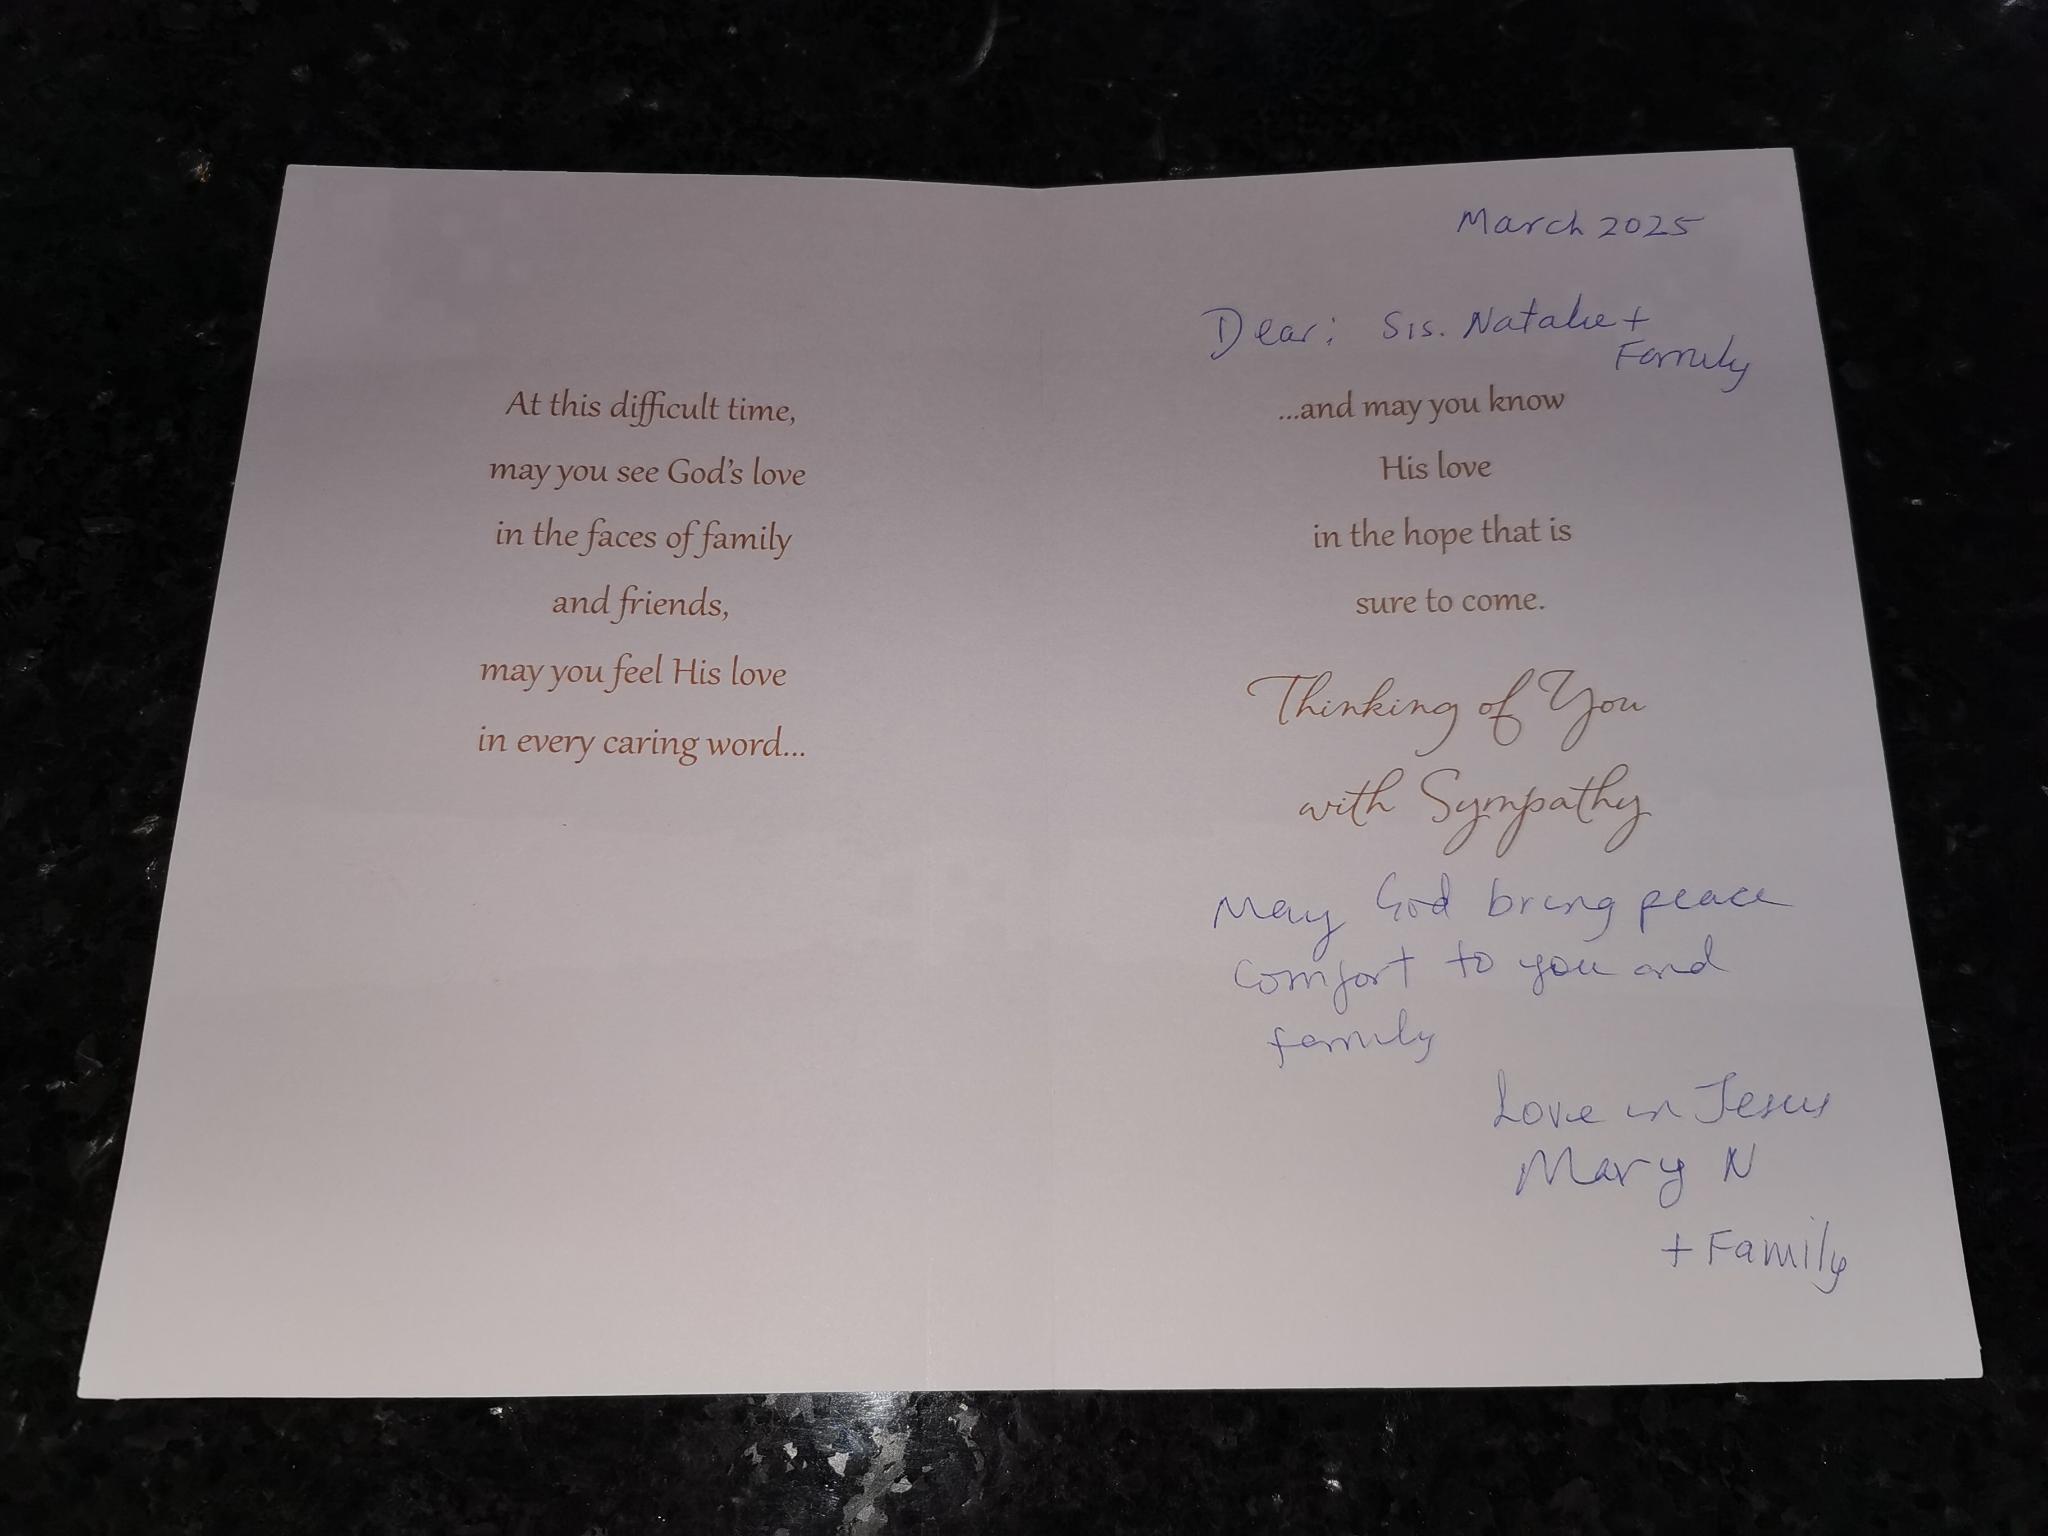 At this difficult time,
may you see God's love
in the faces of family
and friends,
may you feel His love
in every caring word...
March 2025
Dear: Sis. Natalie +
Family
...and may you know
His love
in the hope that is
sure to come.
Thinking of You
with Sympathy
May God bring peace
comfort to you and
family
Love in Jesus
Mary N
+ Family